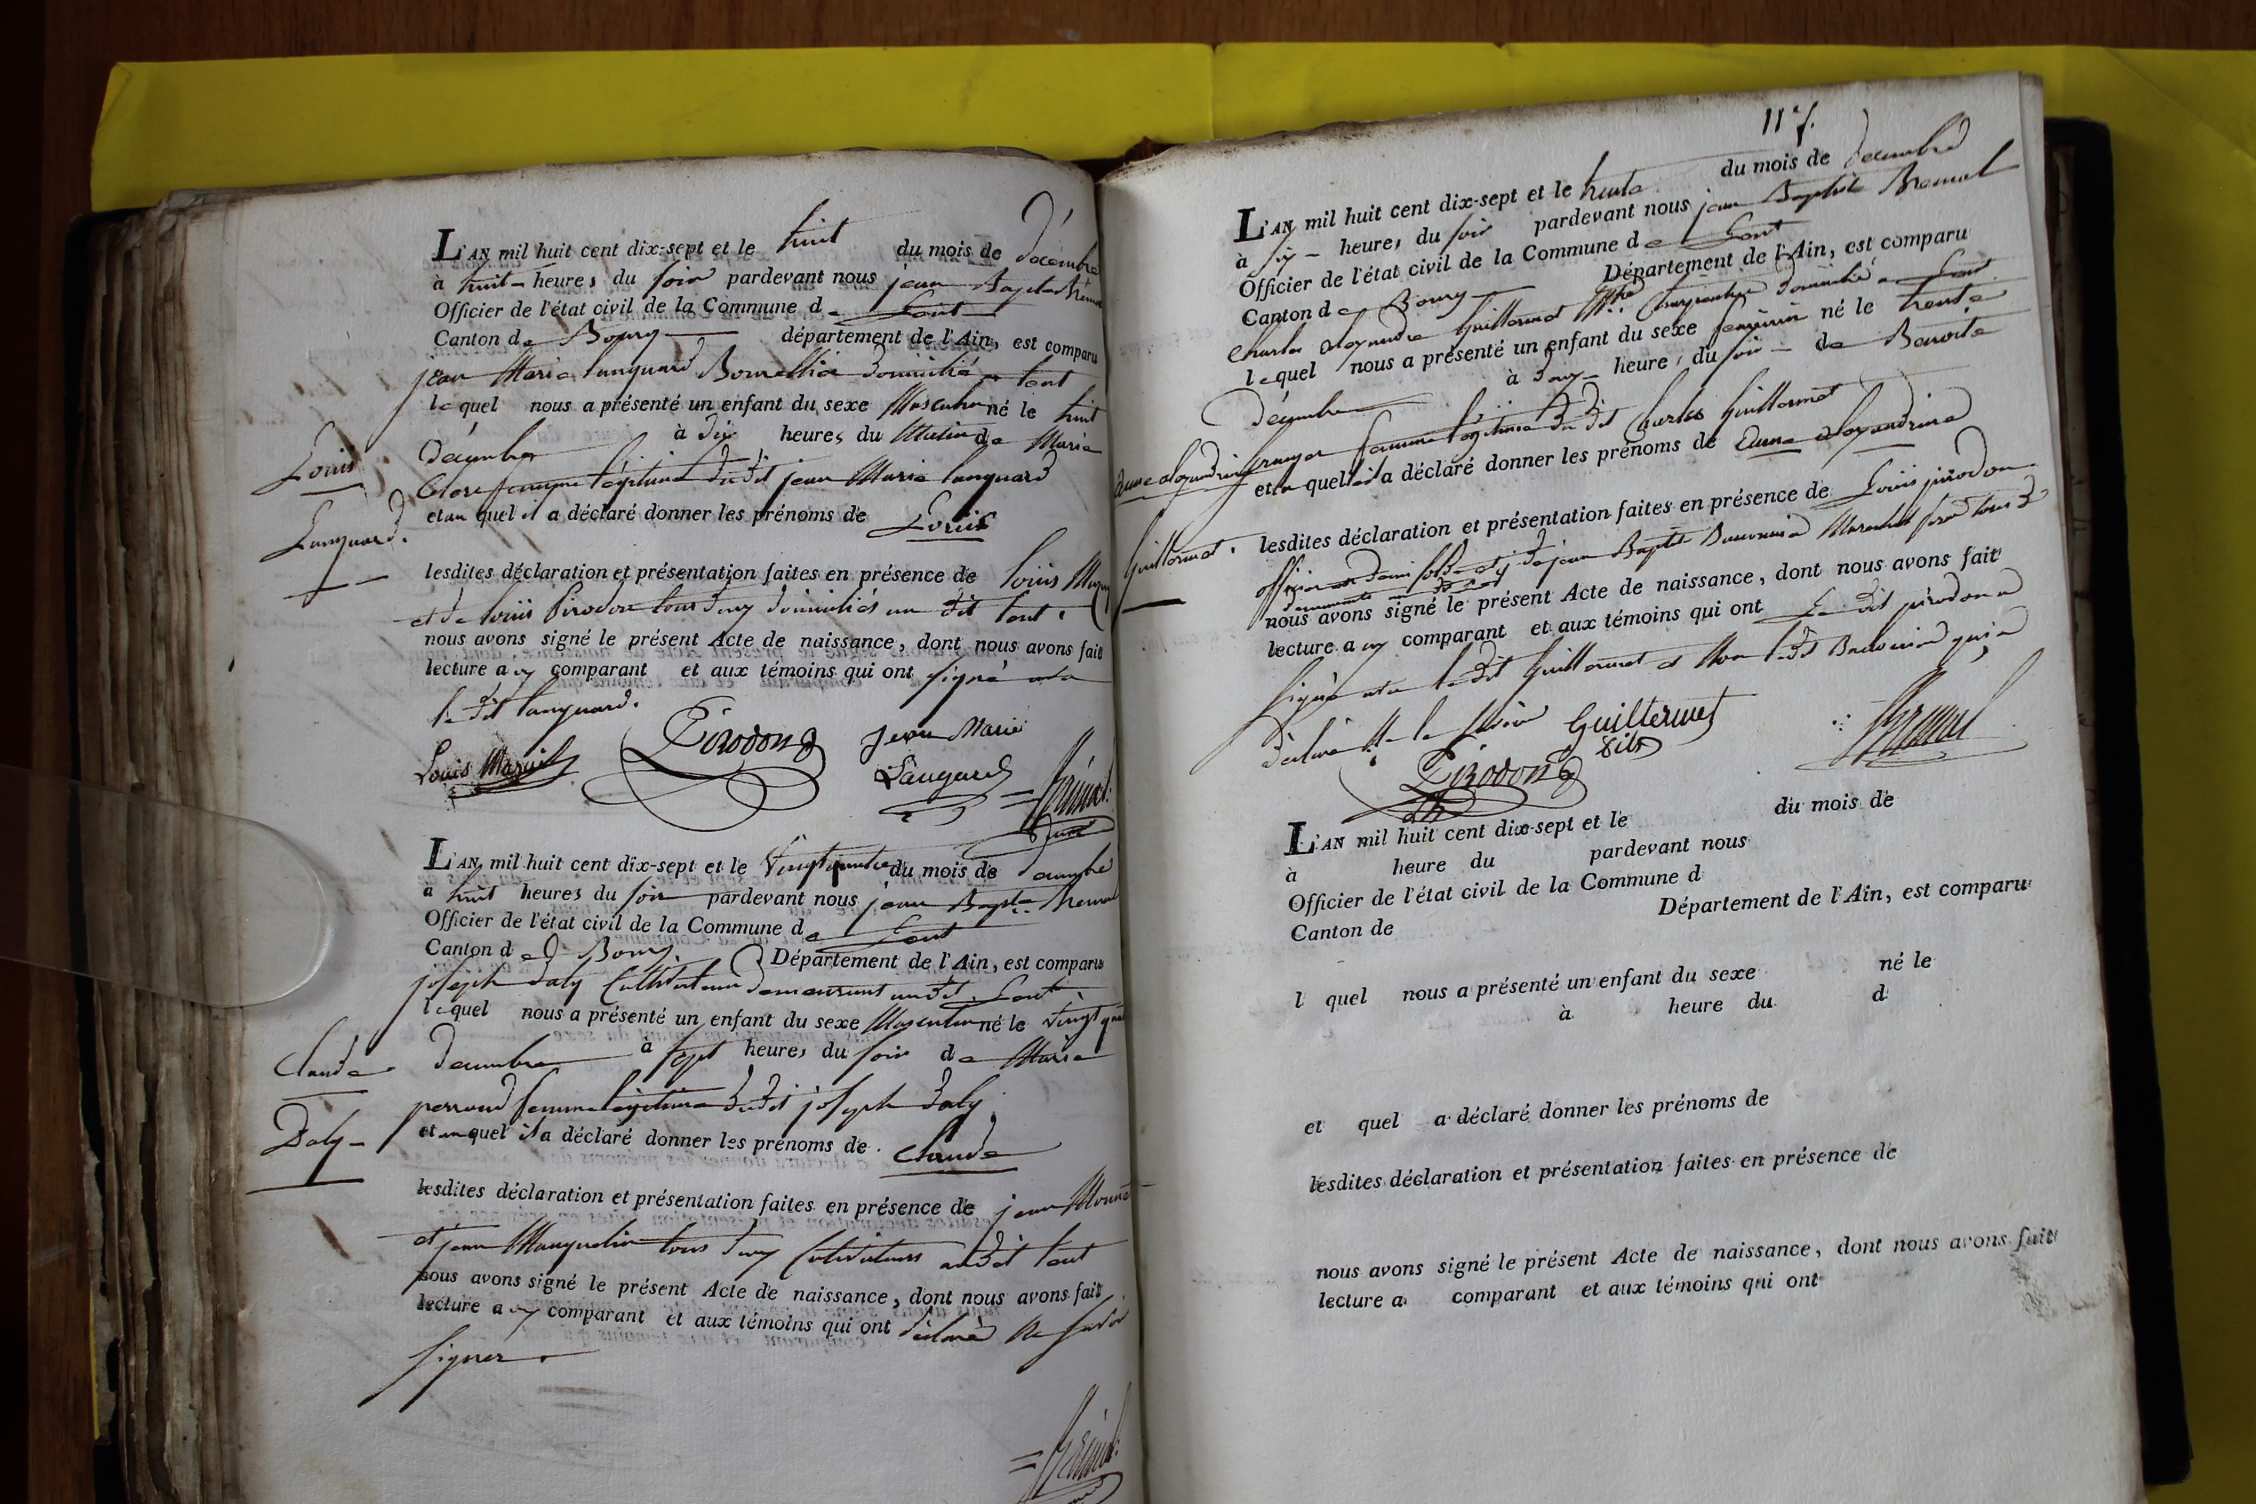 L'AN mil huit cent dix-sept et le huit du mois de décembre
à huit heures du soir pardevant nous jean Baptiste
Officier de l'état civil de la Commune de
Canton de Bourg département de l'Ain, est comparu
jean Marie languard domicilié
lequel nous a présenté un enfant du sexe Masculin né le huit
décembre à dix heures du Matin de Marie
femme légitime dudit jean Marie languard
et auquel il a déclaré donner les prénoms de Louis
Louis
Languard.
lesdites déclaration et présentation faites en présence de louis
et de louis Pirodon tous deux domiciliés au dit
nous avons signé le présent Acte de naissance, dont nous avons fait
lecture au comparant et aux témoins qui ont signé
le dit languard.
Louis Pirodon Jean Marie
Langard
L'AN mil huit cent dix-sept et le vingt quatre du mois de décembre
à huit heures du soir pardevant nous jean Bapte
Officier de l'état civil de la Commune de
Canton de Bourg Département de l'Ain, est comparu
joseph Daly Cultivateur demeurant audit
lequel nous a présenté un enfant du sexe Masculin né le vingt
decembre à sept heures du soir de Marie
perroud femme légitime dudit joseph Daly
et auquel il a déclaré donner les prénoms de Claude
Claude
Daly
lesdites déclaration et présentation faites en présence de jean
et jean tous deux Cultivateurs audit
nous avons signé le présent Acte de naissance, dont nous avons fait
lecture au comparant et aux témoins qui ont déclaré ne savoir
signer.
117.
L'AN mil huit cent dix-sept et le trente du mois de decembre
à six heures du soir pardevant nous jean Baptiste
Officier de l'état civil de la Commune de
Canton de Bourg Département de l'Ain, est comparu
Charles alexandre Guillermet domicilié
lequel nous a présenté un enfant du sexe feminin né le trente
décembre à deux heures du soir de Benoite
femme légitime du dit Charles Guillermet
et a quelle il a déclaré donner les prénoms de anne alexandrine
anne alexandrine
Guillermet.
lesdites déclaration et présentation faites en présence de Louis pirodon
officier en demi solde et de jean Baptiste tous deux
nous avons signé le présent Acte de naissance, dont nous avons fait
lecture au comparant et aux témoins qui ont Le dit pirodon a
signé le dit Guillermet et non ledit qui a
déclaré ne le savoir Guillermet
fils
Pirodon
L'AN mil huit cent dix-sept et le du mois de
à heure du pardevant nous
Officier de l'état civil de la Commune d
Canton de Département de l'Ain, est comparu
l quel nous a présenté un enfant du sexe né le
à heure du d
et quel a déclaré donner les prénoms de
lesdites déclaration et présentation faites en présence de
nous avons signé le présent Acte de naissance, dont nous avons fait
lecture a comparant et aux témoins qui ont